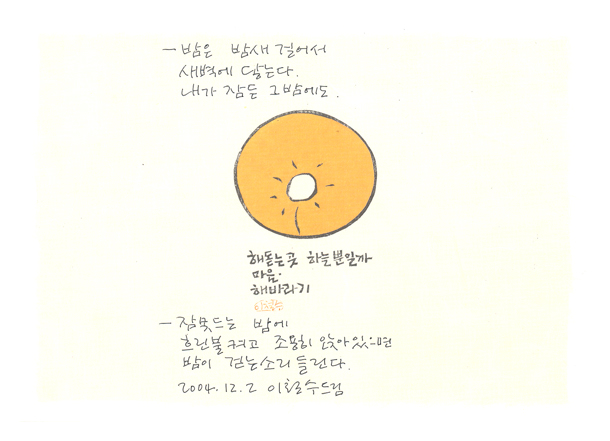 - 밤은 밤새 걸어서
새벽에 닿는다.
내가 잠든 그 밤에도.
해돋는 곳 하늘뿐일까
마음.
해바라기
- 잠못드는 밤에
흐린불 켜고 조용히 앉아있으면
밤이 걷는소리 들린다.
2004.12.2 이철수드림